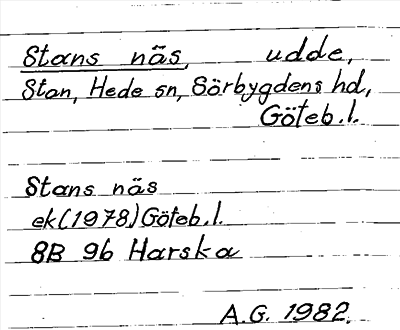 Stans näs, udde,
Stan, Hede sn, Sörbygdens hd,
Göteb. l.
Stans näs
ek (1978) Göteb. l.
8B 9b Harska
A.G. 1982.